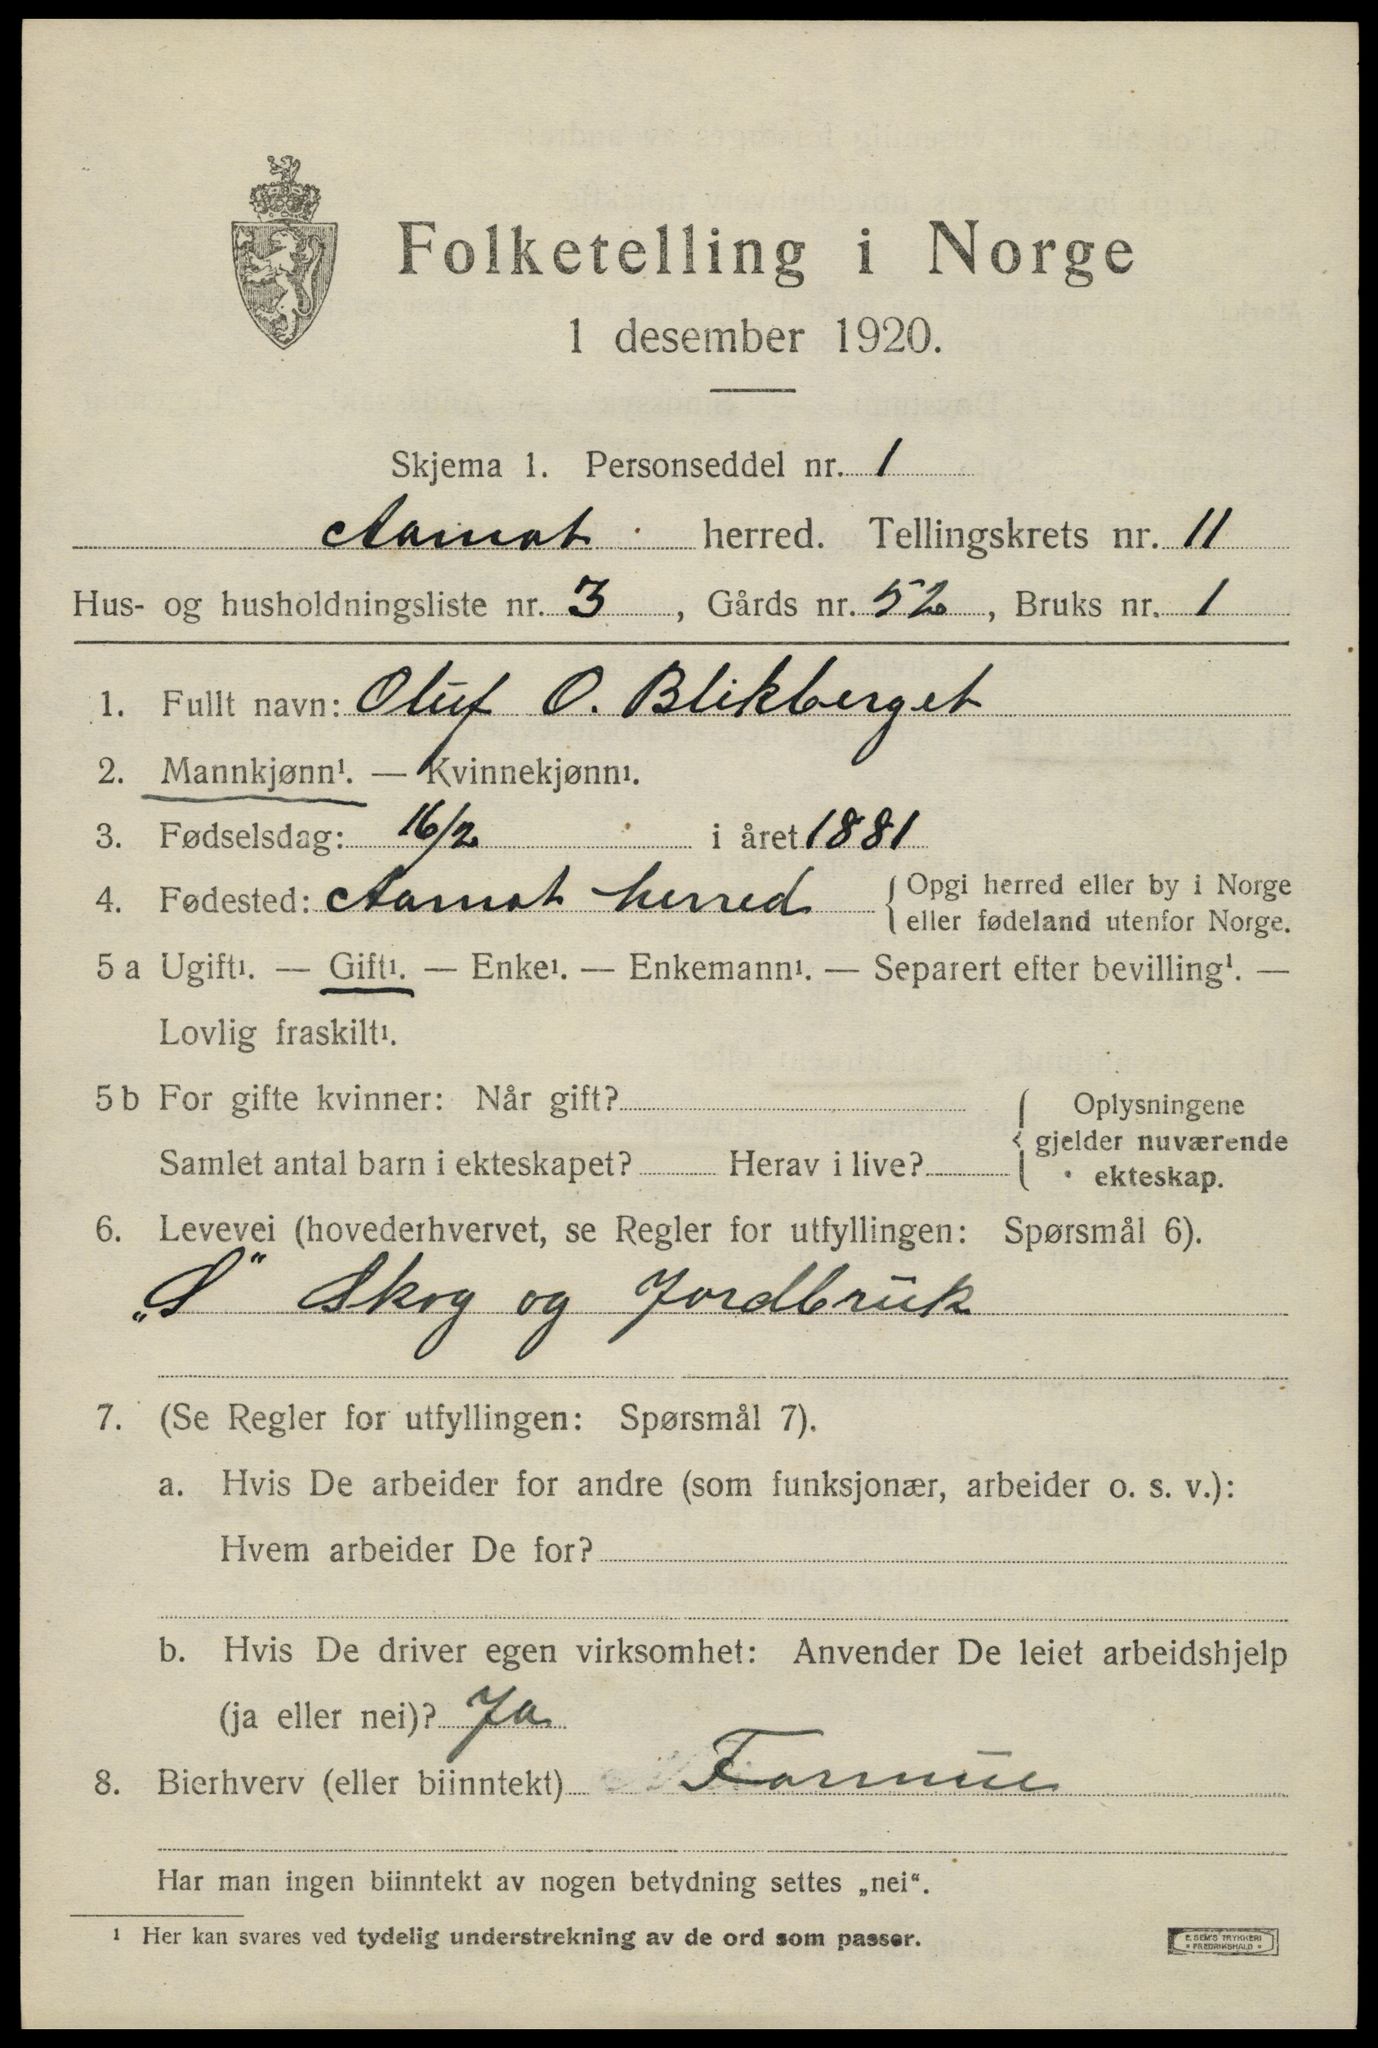 Folketelling i Norge
1 desember 1920.
Skjema 1. Personseddel nr. 1
Aamot herred. Tellingskrets nr. 11
Hus- og husholdningsliste nr. 3, Gårds nr. 52, Bruks nr. 1
1. Fullt navn: Oluf O. Blikberget
2. Mannkjønn¹. — Kvinnekjønn¹.
3. Fødselsdag: 16/2 i året 1881
4. Fødested: Aamot herred {Opgi herred eller by i Norge
eller fødeland utenfor Norge.
5 a Ugift¹. — Gift¹. — Enke¹. — Enkemann¹. — Separert efter bevilling¹. —
Lovlig fraskilt¹.
5 b For gifte kvinner: Når gift? { Oplysningene
gjelder nuværende
Samlet antal barn i ekteskapet? Herav i live? ekteskap.
6. Levevei (hovederhvervet, se Regler for utfyllingen: Spørsmål 6).
„S" Skog og Jordbruk
7. (Se Regler for utfyllingen: Spørsmål 7).
a. Hvis De arbeider for andre (som funksjonær, arbeider o. s. v.):
Hvem arbeider De for?
b. Hvis De driver egen virksomhet: Anvender De leiet arbeidshjelp
(ja eller nei)? Ja
8. Bierhverv (eller biinntekt) Formue
Har man ingen biinntekt av nogen betydning settes „nei“.
¹ Her kan svares ved tydelig understrekning av de ord som passer.
E. SEM'S TRYKKERI
• FREDRIKSHALD •